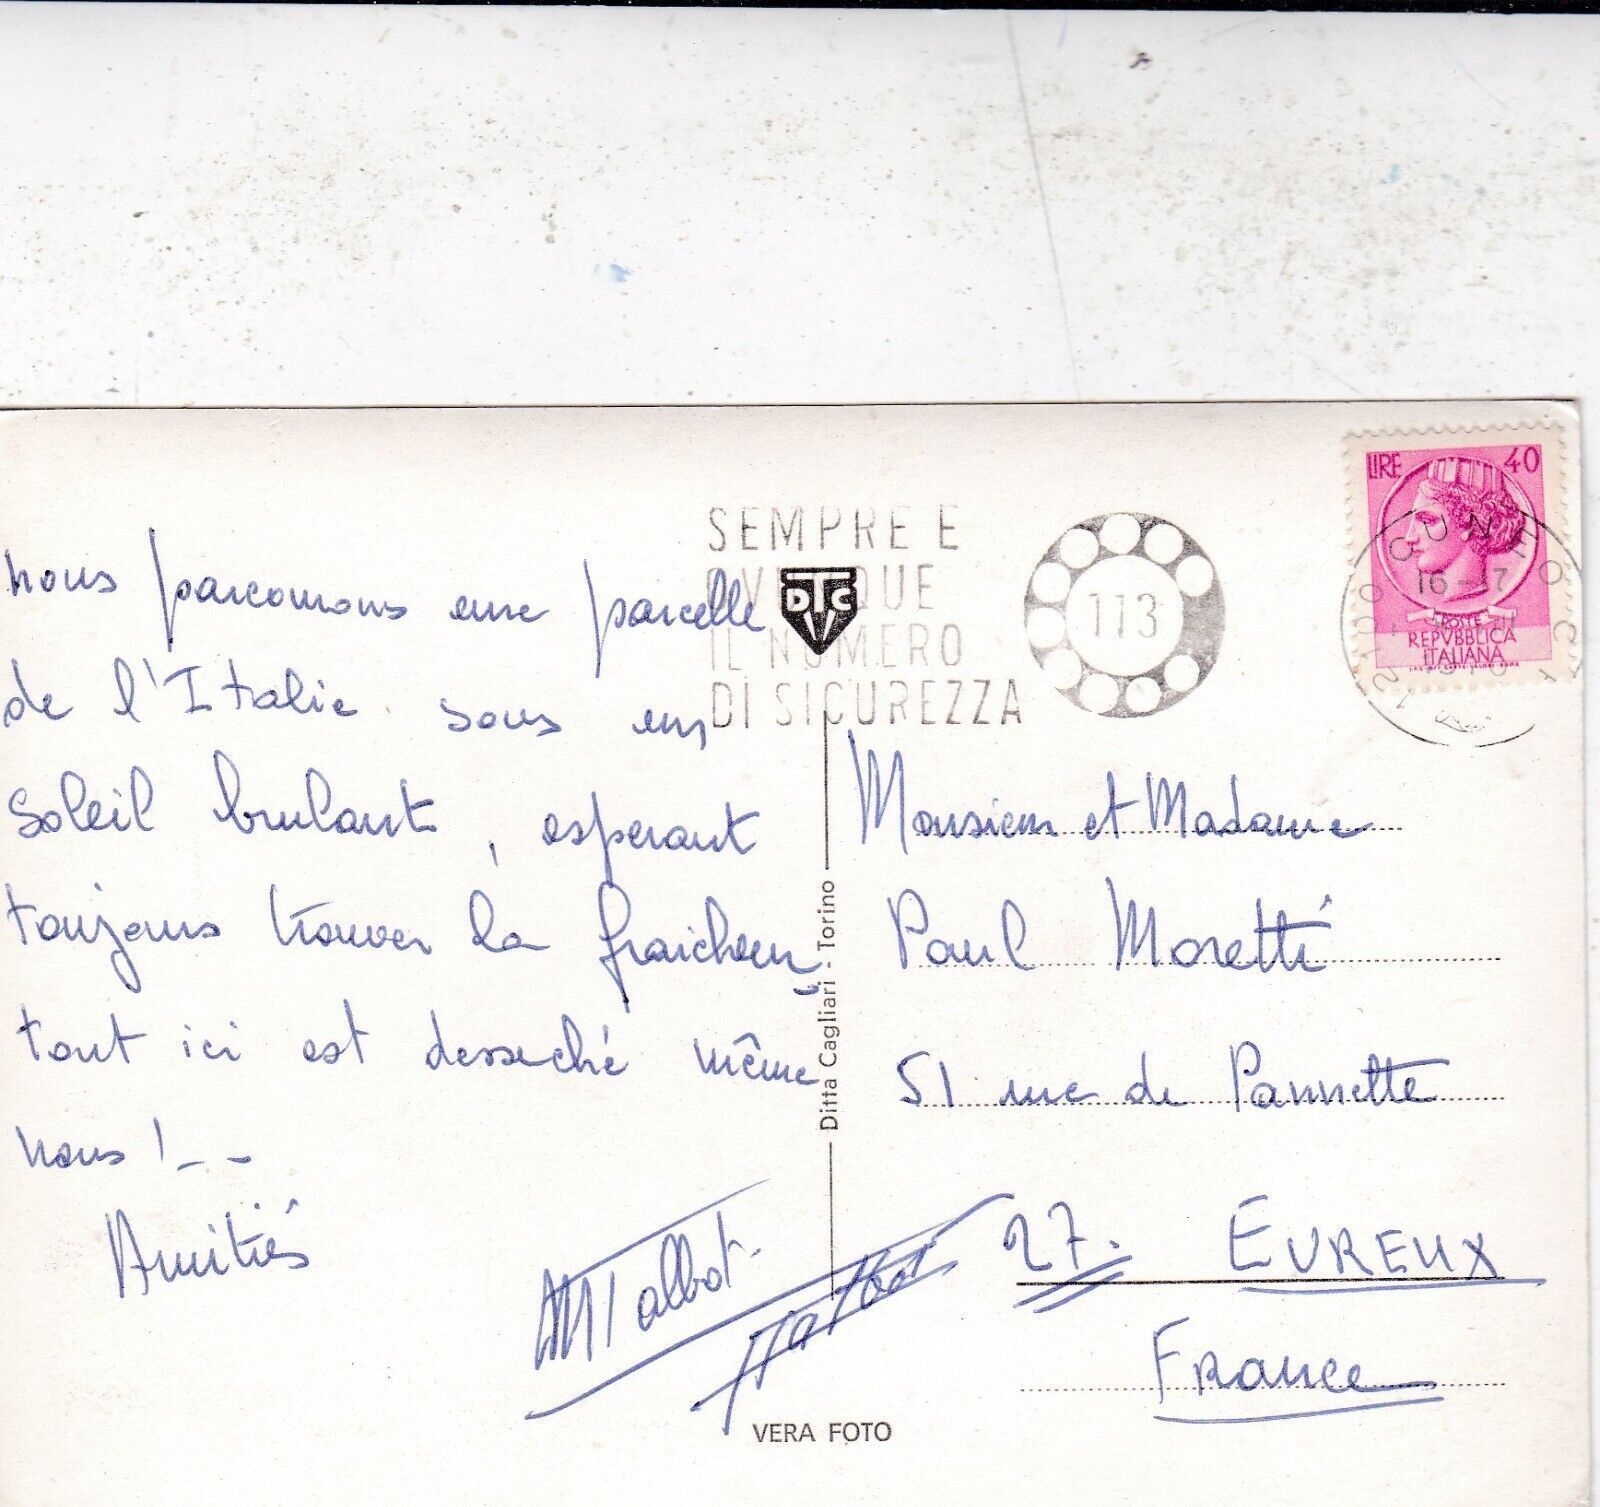 nous parcourons une parcelle
de l'Italie sous un
soleil brulant, esperant
toujours trouver la fraicheur
tout ici est desseché même
nous !--
Amitiés
MTalbot
Talbot
SEMPRE E
OVUNQUE
IL NUMERO
DI SICUREZZA
113
DTC
LIRE 40
POSTE
REPVBBLICA
ITALIANA
CUNEO
16-17
Ditta Cagliari - Torino
Monsieur et Madame
Paul Moretti
51 rue de Pannette
27. EVREUX
France
VERA FOTO